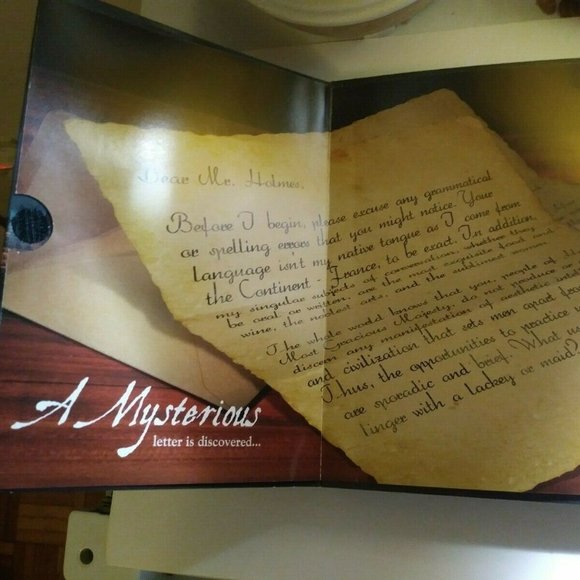 Dear Mr. Holmes,
Before I begin, please excuse any grammatical
or spelling errors that you might notice. Your
language isn't my native tongue as I come from
the Continent - France, to be exact. In addition,
my singular subjects of conversation, whether they
be oral or written, are the most exquisite food and
wine, the noblest arts, and the sublimest women.
The whole world knows that you, people of
Most Gracious Majesty, do not produce or
discern any manifestation of aesthetic
and civilization that sets men apart from
Thus, the opportunities to practice
are sporadic and brief. What
linger with a lackey or maid?
A Mysterious
letter is discovered...